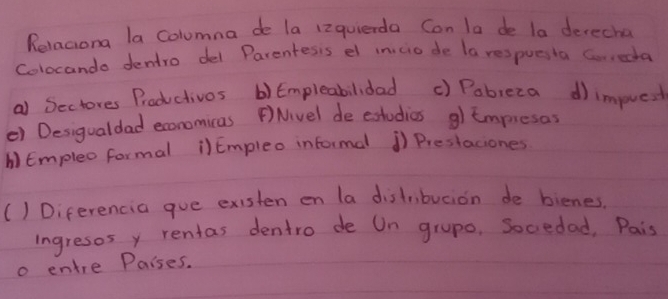 Relaciona la Columna de la izquierda Con la de la derecha
Colocando dentro del Parentesis el inicio de la respuesta Correcta
a) Sectores Productivos b) Empleabilidad c) Pobreza d) impuest
e) Desigualdad economicas F) Nivel de estudios g) Empresas
h) Empleo formal i) Empleo informal j) Prestaciones.
( ) Diferencia que existen en la distribución de bienes,
ingresos y rentas dentro de Un grupo, Sociedad, Pais
o entre Países.